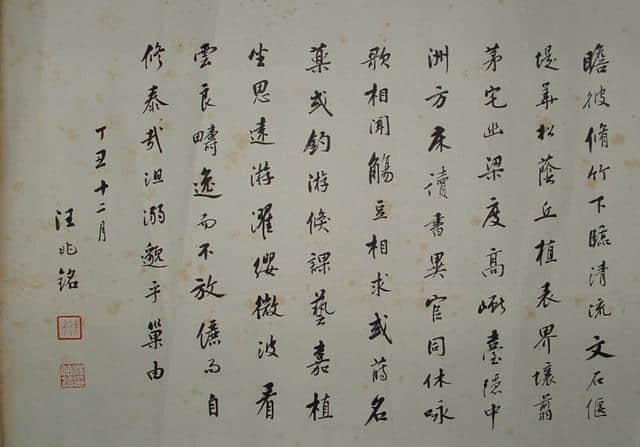 瞻彼脩竹下臨清流文石偃
堤華松蔭丘植表界壤翦
茅宅幽梁度高臺隱中
洲方床讀書異官同休咏
歌相聞觴豆相求或蒔名
藥或釣游課藝嘉植
坐思遠游濯纓微波看
雲良疇逸而不放儉而自
修泰哉沮溺邈乎巢由
丁丑十二月
汪兆銘